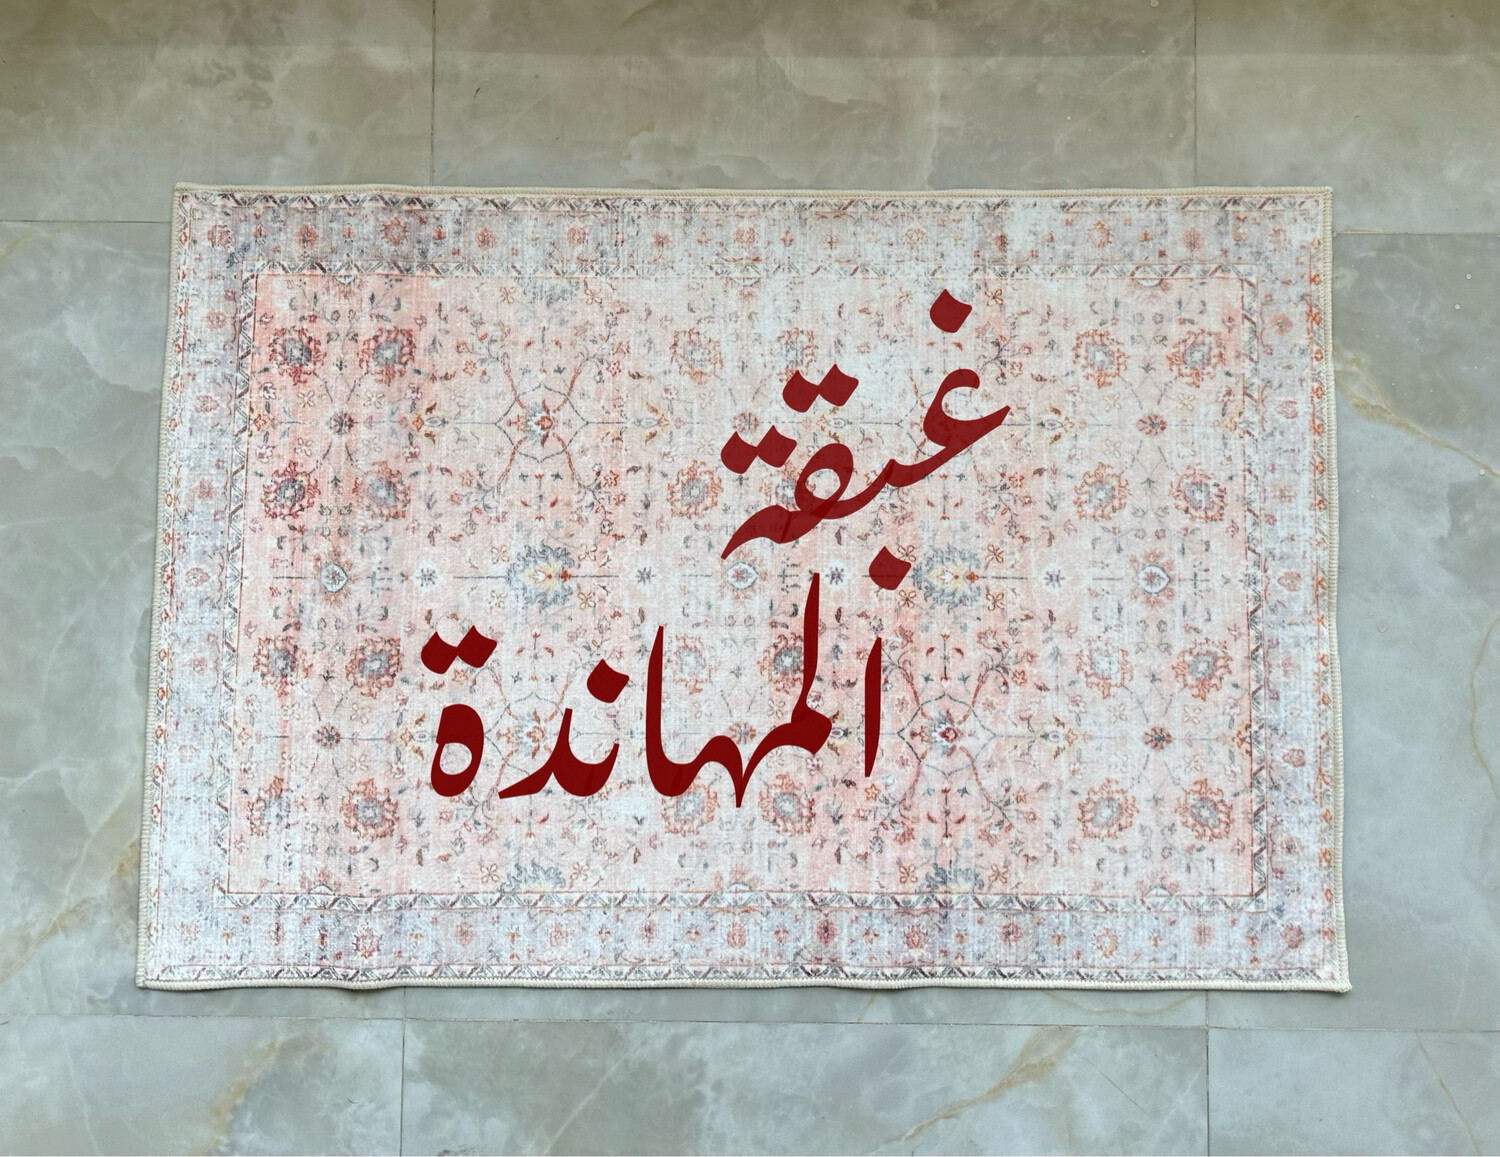 غبقة
المهاندة